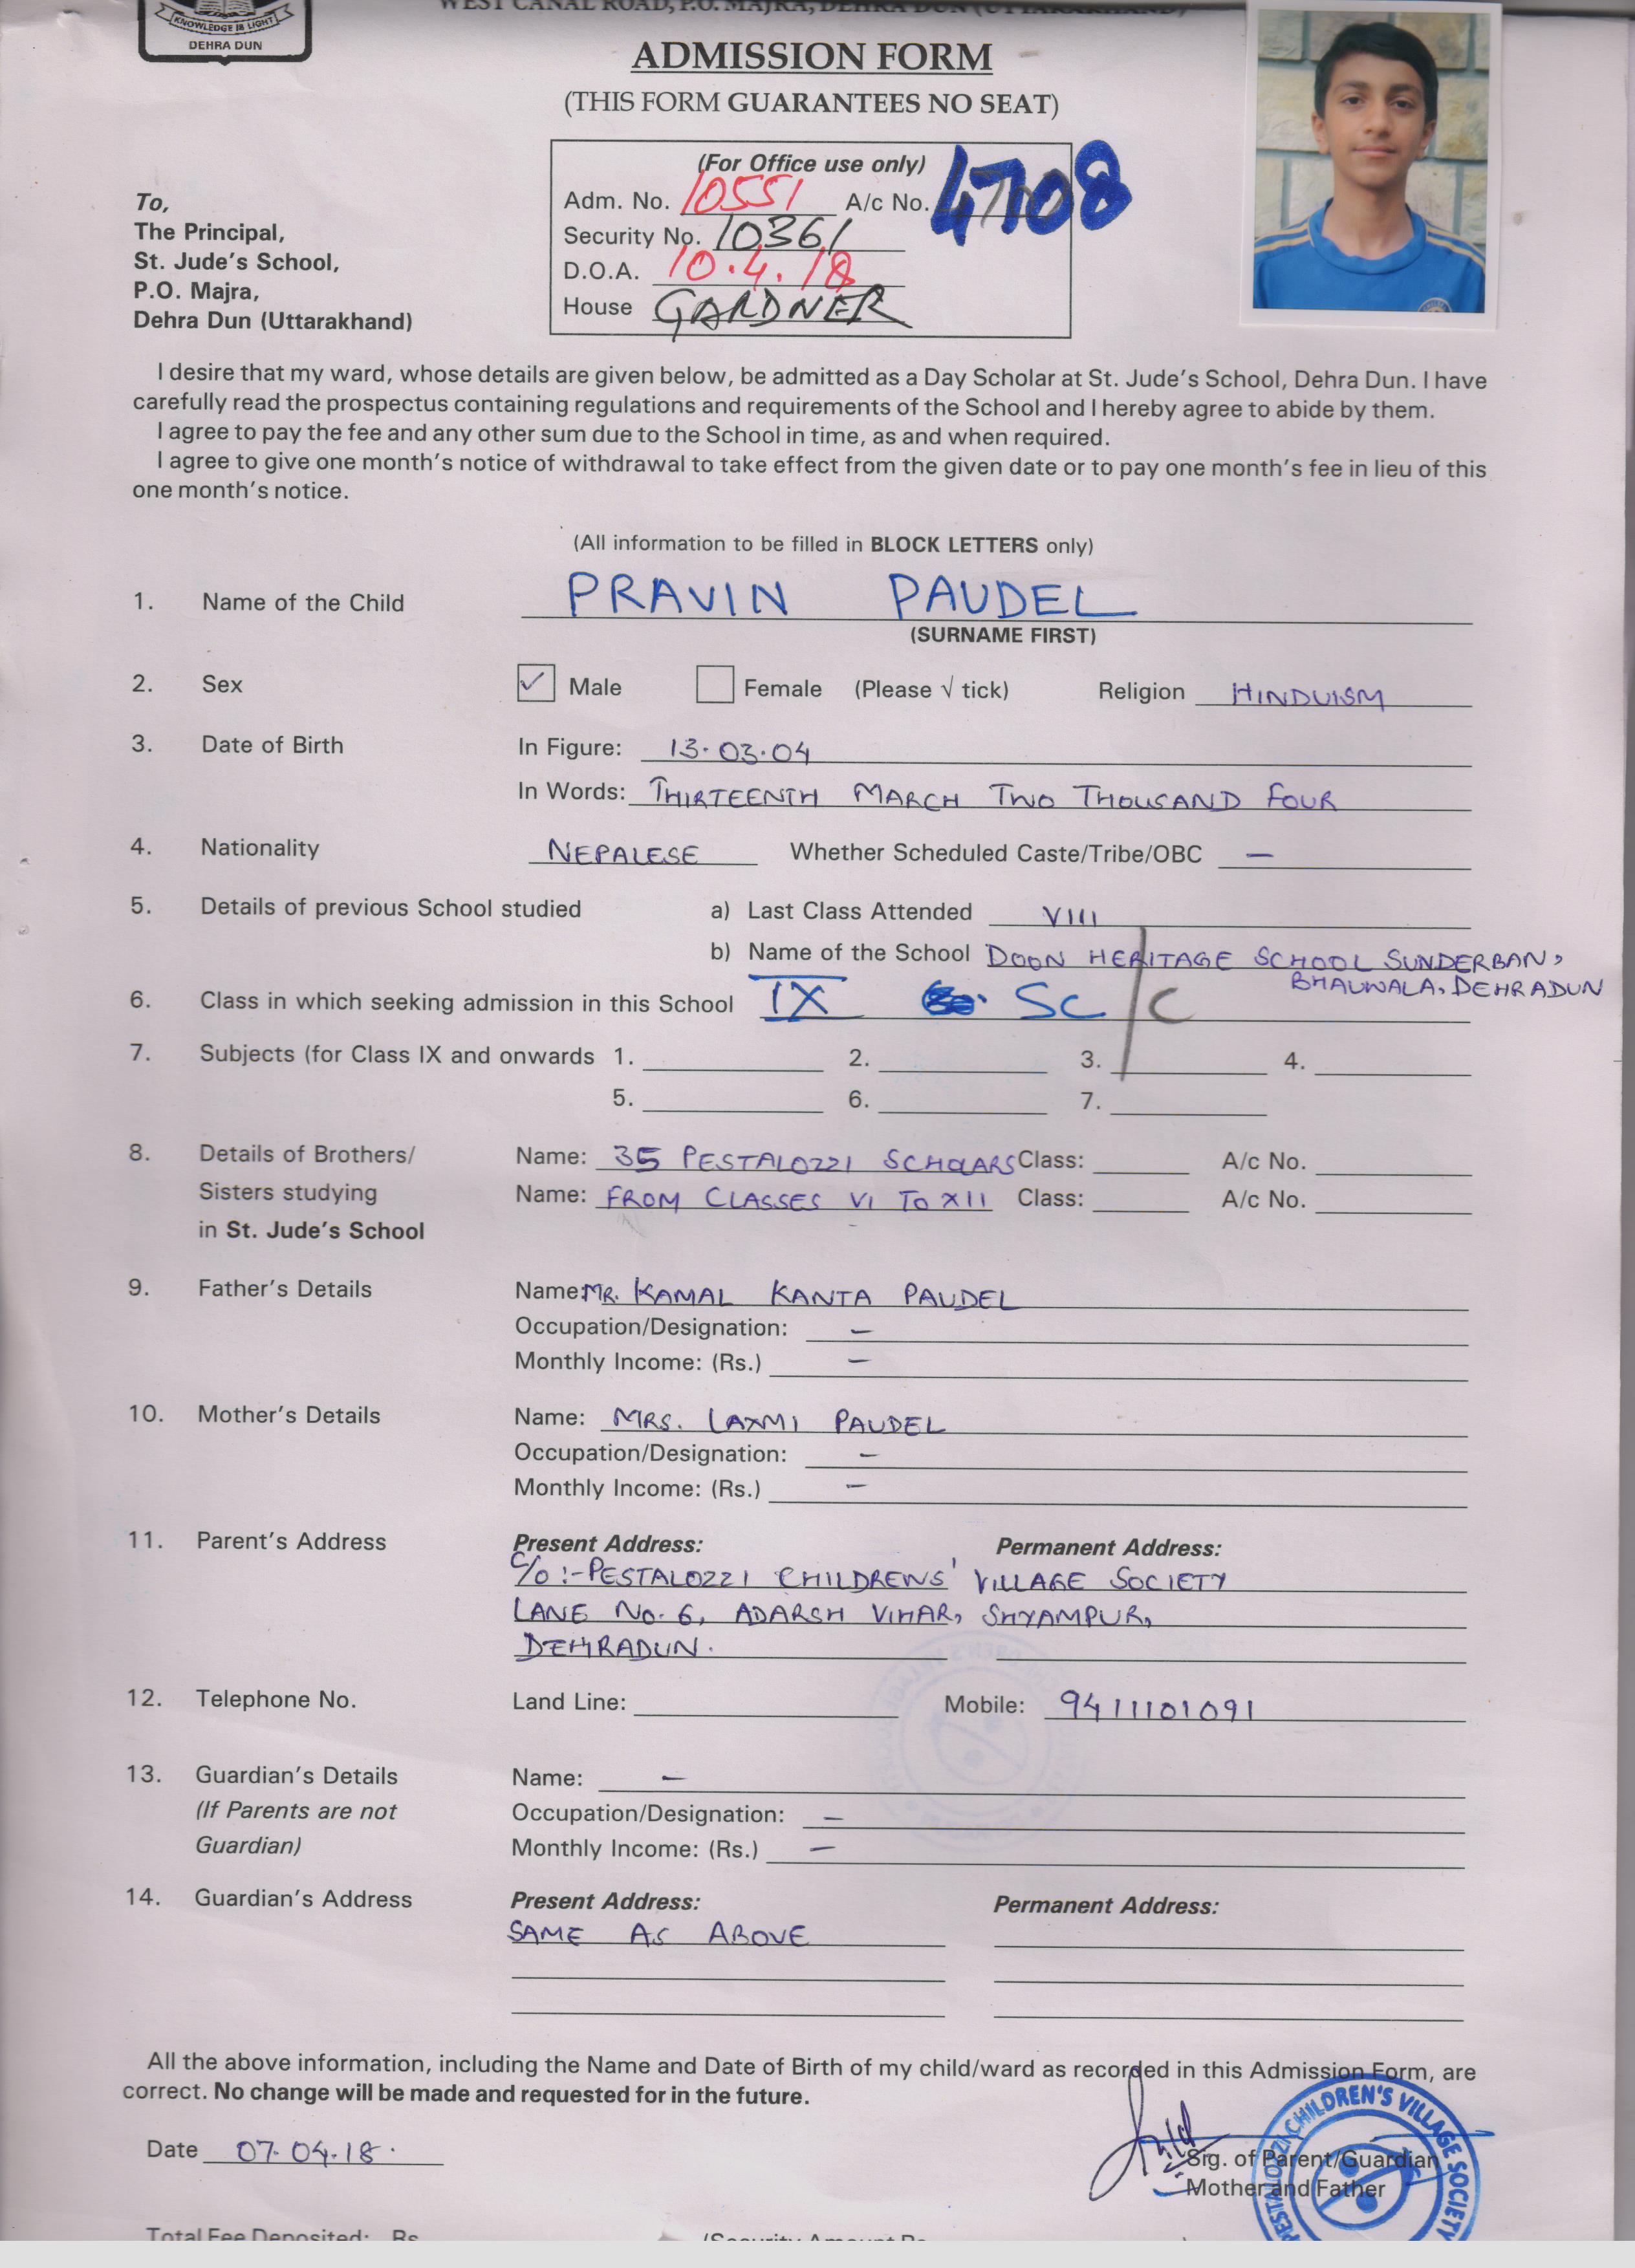 WEST CANAL ROAD, P.O. MAJRA, DEHRA DUN (UTTARAKHAND)
KNOWLEDGE IS LIGHT
DEHRA DUN
ADMISSION FORM
(THIS FORM GUARANTEES NO SEAT)
(For Office use only)
Adm. No. 10551 A/c No. 4708
Security No. 10361
D.O.A. 10.4.18
House GARDNER
To,
The Principal,
St. Jude's School,
P.O. Majra,
Dehra Dun (Uttarakhand)
I desire that my ward, whose details are given below, be admitted as a Day Scholar at St. Jude's School, Dehra Dun. I have
carefully read the prospectus containing regulations and requirements of the School and I hereby agree to abide by them.
I agree to pay the fee and any other sum due to the School in time, as and when required.
I agree to give one month's notice of withdrawal to take effect from the given date or to pay one month's fee in lieu of this
one month's notice.
(All information to be filled in BLOCK LETTERS only)
1. Name of the Child PRAVIN PAUDEL
(SURNAME FIRST)
2. Sex ✓ Male Female (Please √ tick) Religion HINDUISM
3. Date of Birth In Figure: 13.03.04
In Words: THIRTEENTH MARCH TWO THOUSAND FOUR
4. Nationality NEPALESE Whether Scheduled Caste/Tribe/OBC —
5. Details of previous School studied a) Last Class Attended VIII
b) Name of the School DOON HERITAGE SCHOOL SUNDERBAN,
BHAUWALA, DEHRADUN
6. Class in which seeking admission in this School IX SC/C
7. Subjects (for Class IX and onwards 1. 2. 3. 4.
5. 6. 7.
8. Details of Brothers/ Name: 35 PESTALOZZI SCHOLARS Class: A/c No.
Sisters studying Name: FROM CLASSES VI TO XII Class: A/c No.
in St. Jude's School
9. Father's Details Name: MR. KAMAL KANTA PAUDEL
Occupation/Designation: —
Monthly Income: (Rs.) —
10. Mother's Details Name: MRS. LAXMI PAUDEL
Occupation/Designation: —
Monthly Income: (Rs.) —
11. Parent's Address Present Address: Permanent Address:
C/O :- PESTALOZZI CHILDRENS' VILLAGE SOCIETY
LANE NO. 6, ADARSH VIHAR, SHYAMPUR,
DEHRADUN.
12. Telephone No. Land Line: Mobile: 9411101091
13. Guardian's Details Name: —
(If Parents are not Occupation/Designation: —
Guardian) Monthly Income: (Rs.) —
14. Guardian's Address Present Address: Permanent Address:
SAME AS ABOVE
All the above information, including the Name and Date of Birth of my child/ward as recorded in this Admission Form, are
correct. No change will be made and requested for in the future.
Date 07.04.18.
Sig. of Parent/Guardian
Mother and Father
PESTALOZZI CHILDREN'S VILLAGE SOCIETY
Total Fee Deposited: Rs.